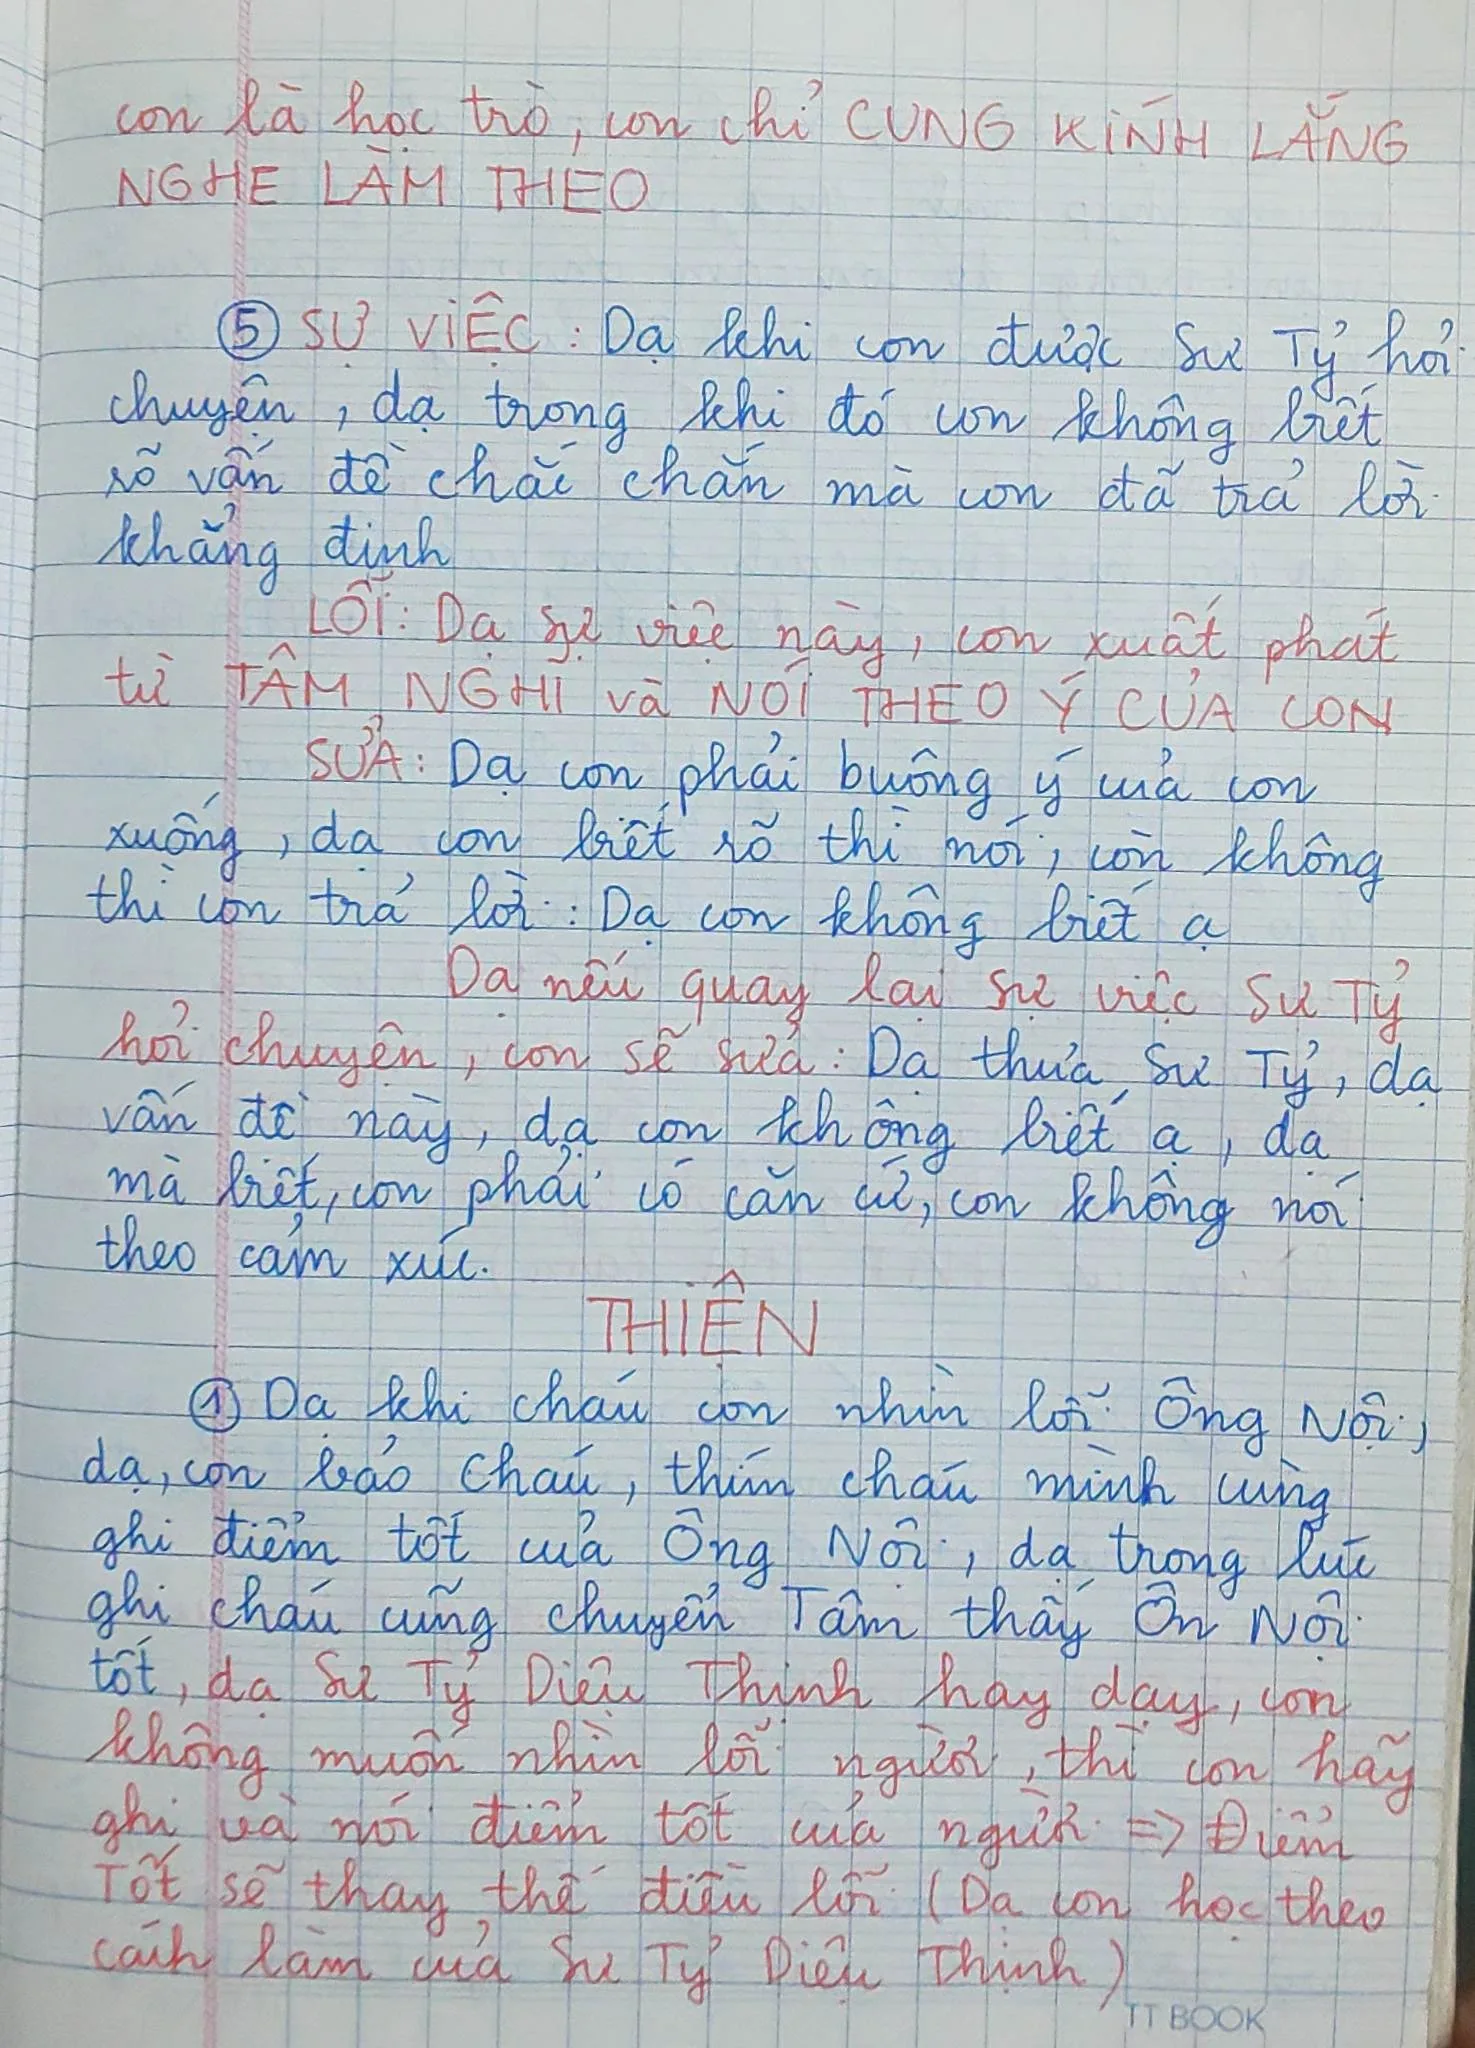 con là học trò, con chỉ CUNG KÍNH LẮNG
NGHE LÀM THEO
⑤ SỰ VIỆC: Dạ khi con được Sư Tỷ hỏi
chuyện, dạ trong khi đó con không biết
rõ vấn đề chắc chắn mà con đã trả lời
khẳng định
LỖI: Dạ sự việc này, con xuất phát
từ TÂM NGHĨ và NÓI THEO Ý CỦA CON
SỬA: Dạ con phải buông ý của con
xuống, dạ con biết rõ thì nói, còn không
thì con trả lời: Dạ con không biết ạ
Dạ nếu quay lại sự việc Sư Tỷ
hỏi chuyện, con sẽ sửa: Dạ thưa Sư Tỷ, dạ
vấn đề này, dạ con không biết ạ, dạ
mà biết, con phải có căn cứ, con không nói
theo cảm xúc.
THIỆN
① Dạ khi cháu con nhìn lỗi Ông Nội,
dạ, con bảo cháu, thím cháu mình cùng
ghi điểm tốt của Ông Nội, dạ trong lúc
ghi cháu cũng chuyển Tâm thấy Ôn Nội
tốt, dạ Sư Tỷ Diệu Thịnh hay dạy, con
không muốn nhìn lỗi người, thì con hãy
ghi và nói điểm tốt của người => Điểm
Tốt sẽ thay thế điều lỗi (Dạ con học theo
cách làm của Sư Tỷ Diệu Thịnh)
TT BOOK